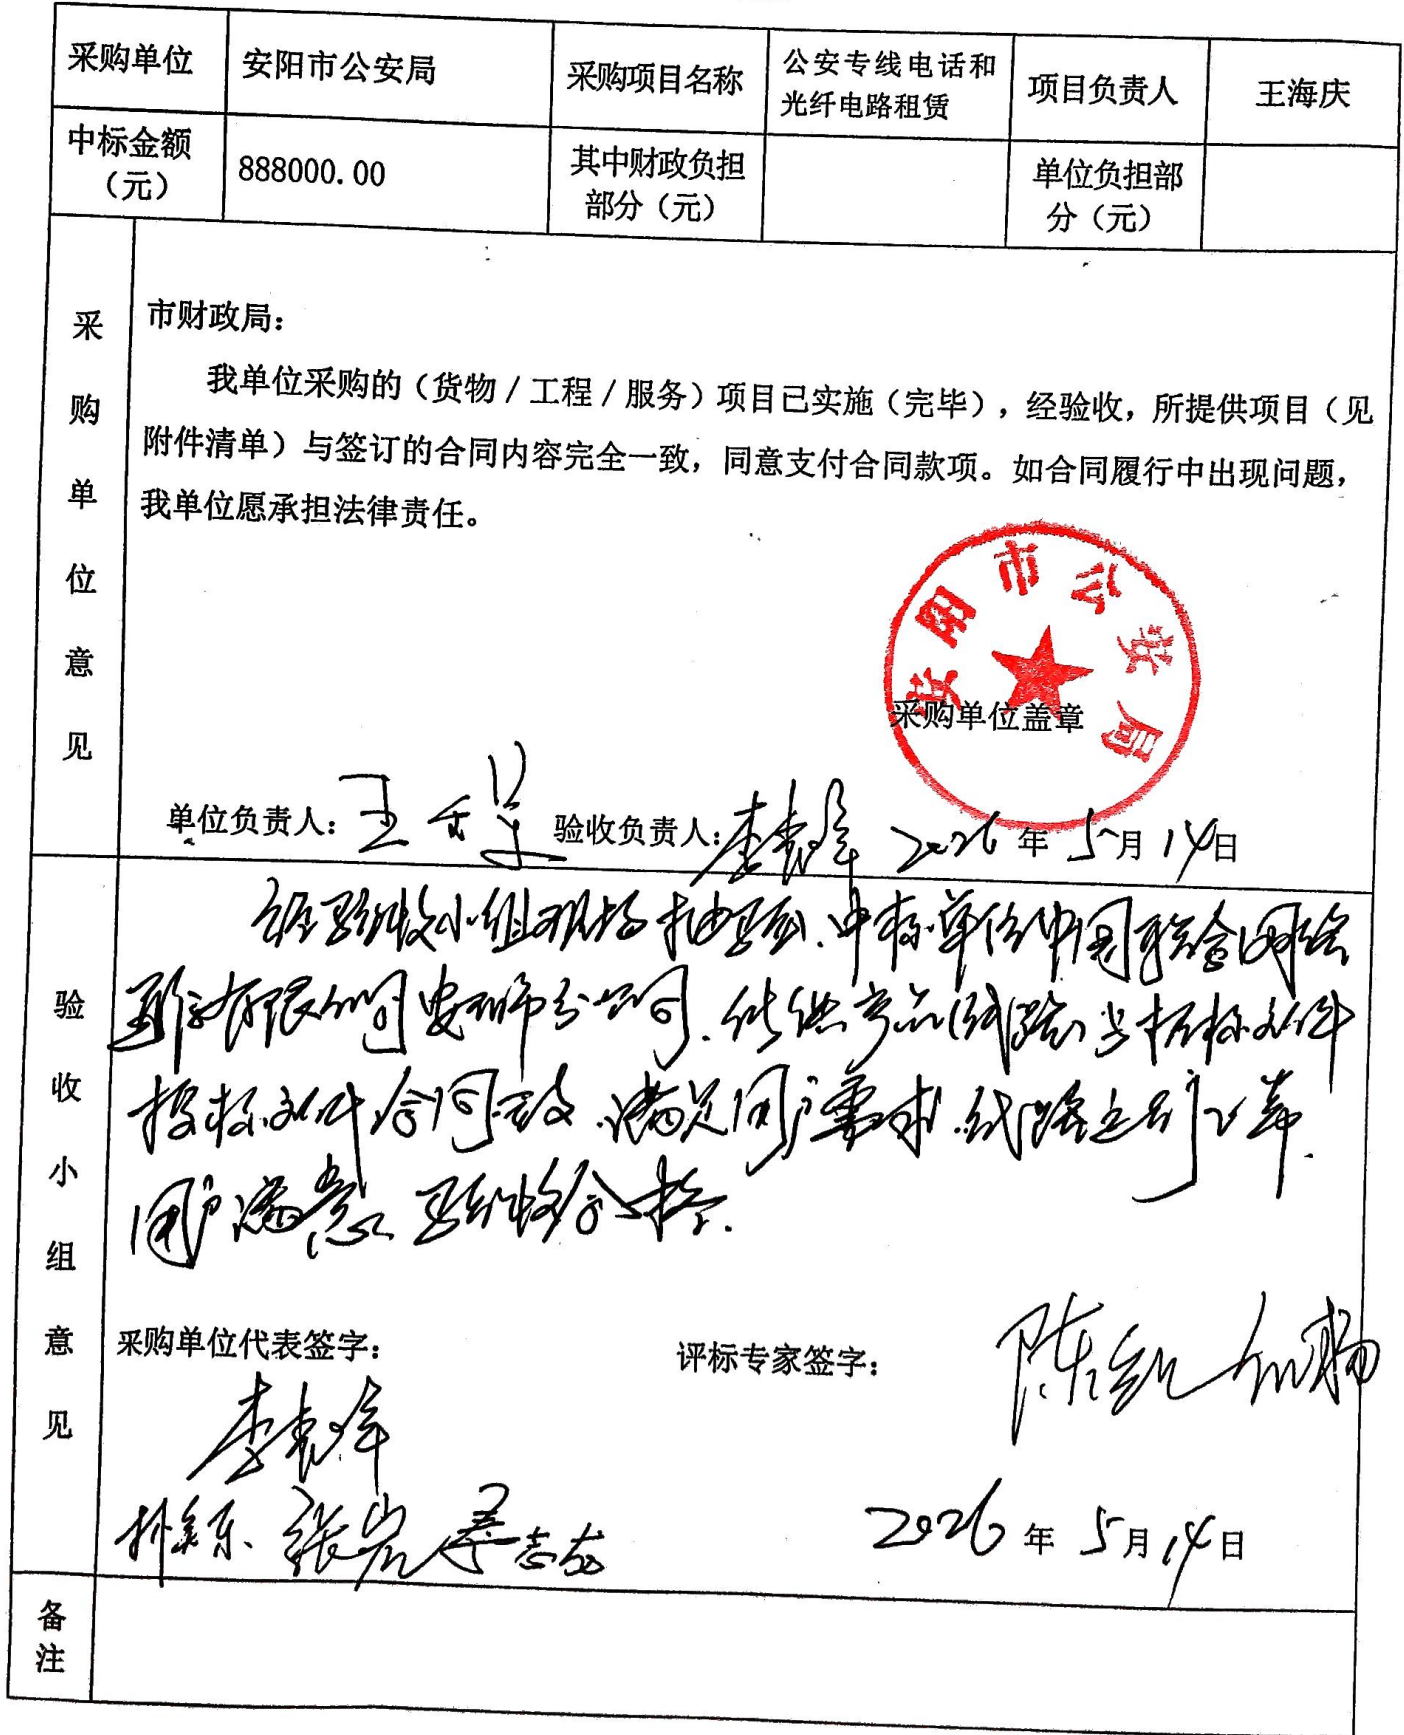 采购单位 安阳市公安局 采购项目名称 公安专线电话和光纤电路租赁 项目负责人 王海庆
中标金额（元） 888000.00 其中财政负担部分（元） 单位负担部分（元）
采购单位意见
市财政局：
我单位采购的（货物/工程/服务）项目已实施（完毕），经验收，所提供项目（见
附件清单）与签订的合同内容完全一致，同意支付合同款项。如合同履行中出现问题，
我单位愿承担法律责任。
安阳市公安局
采购单位盖章
单位负责人： 王 验收负责人： 李 2026年5月14日
验收小组意见
经验收小组现场抽验、中标单位中国联合网络
通信有限公司安阳市分公司、所供产品（线路）与招标文件
投标文件合同一致、满足用户需求、线路
用户满意 验收合格.
采购单位代表签字： 评标专家签字： 陈凯
李
张岩 志
2026年5月14日
备注